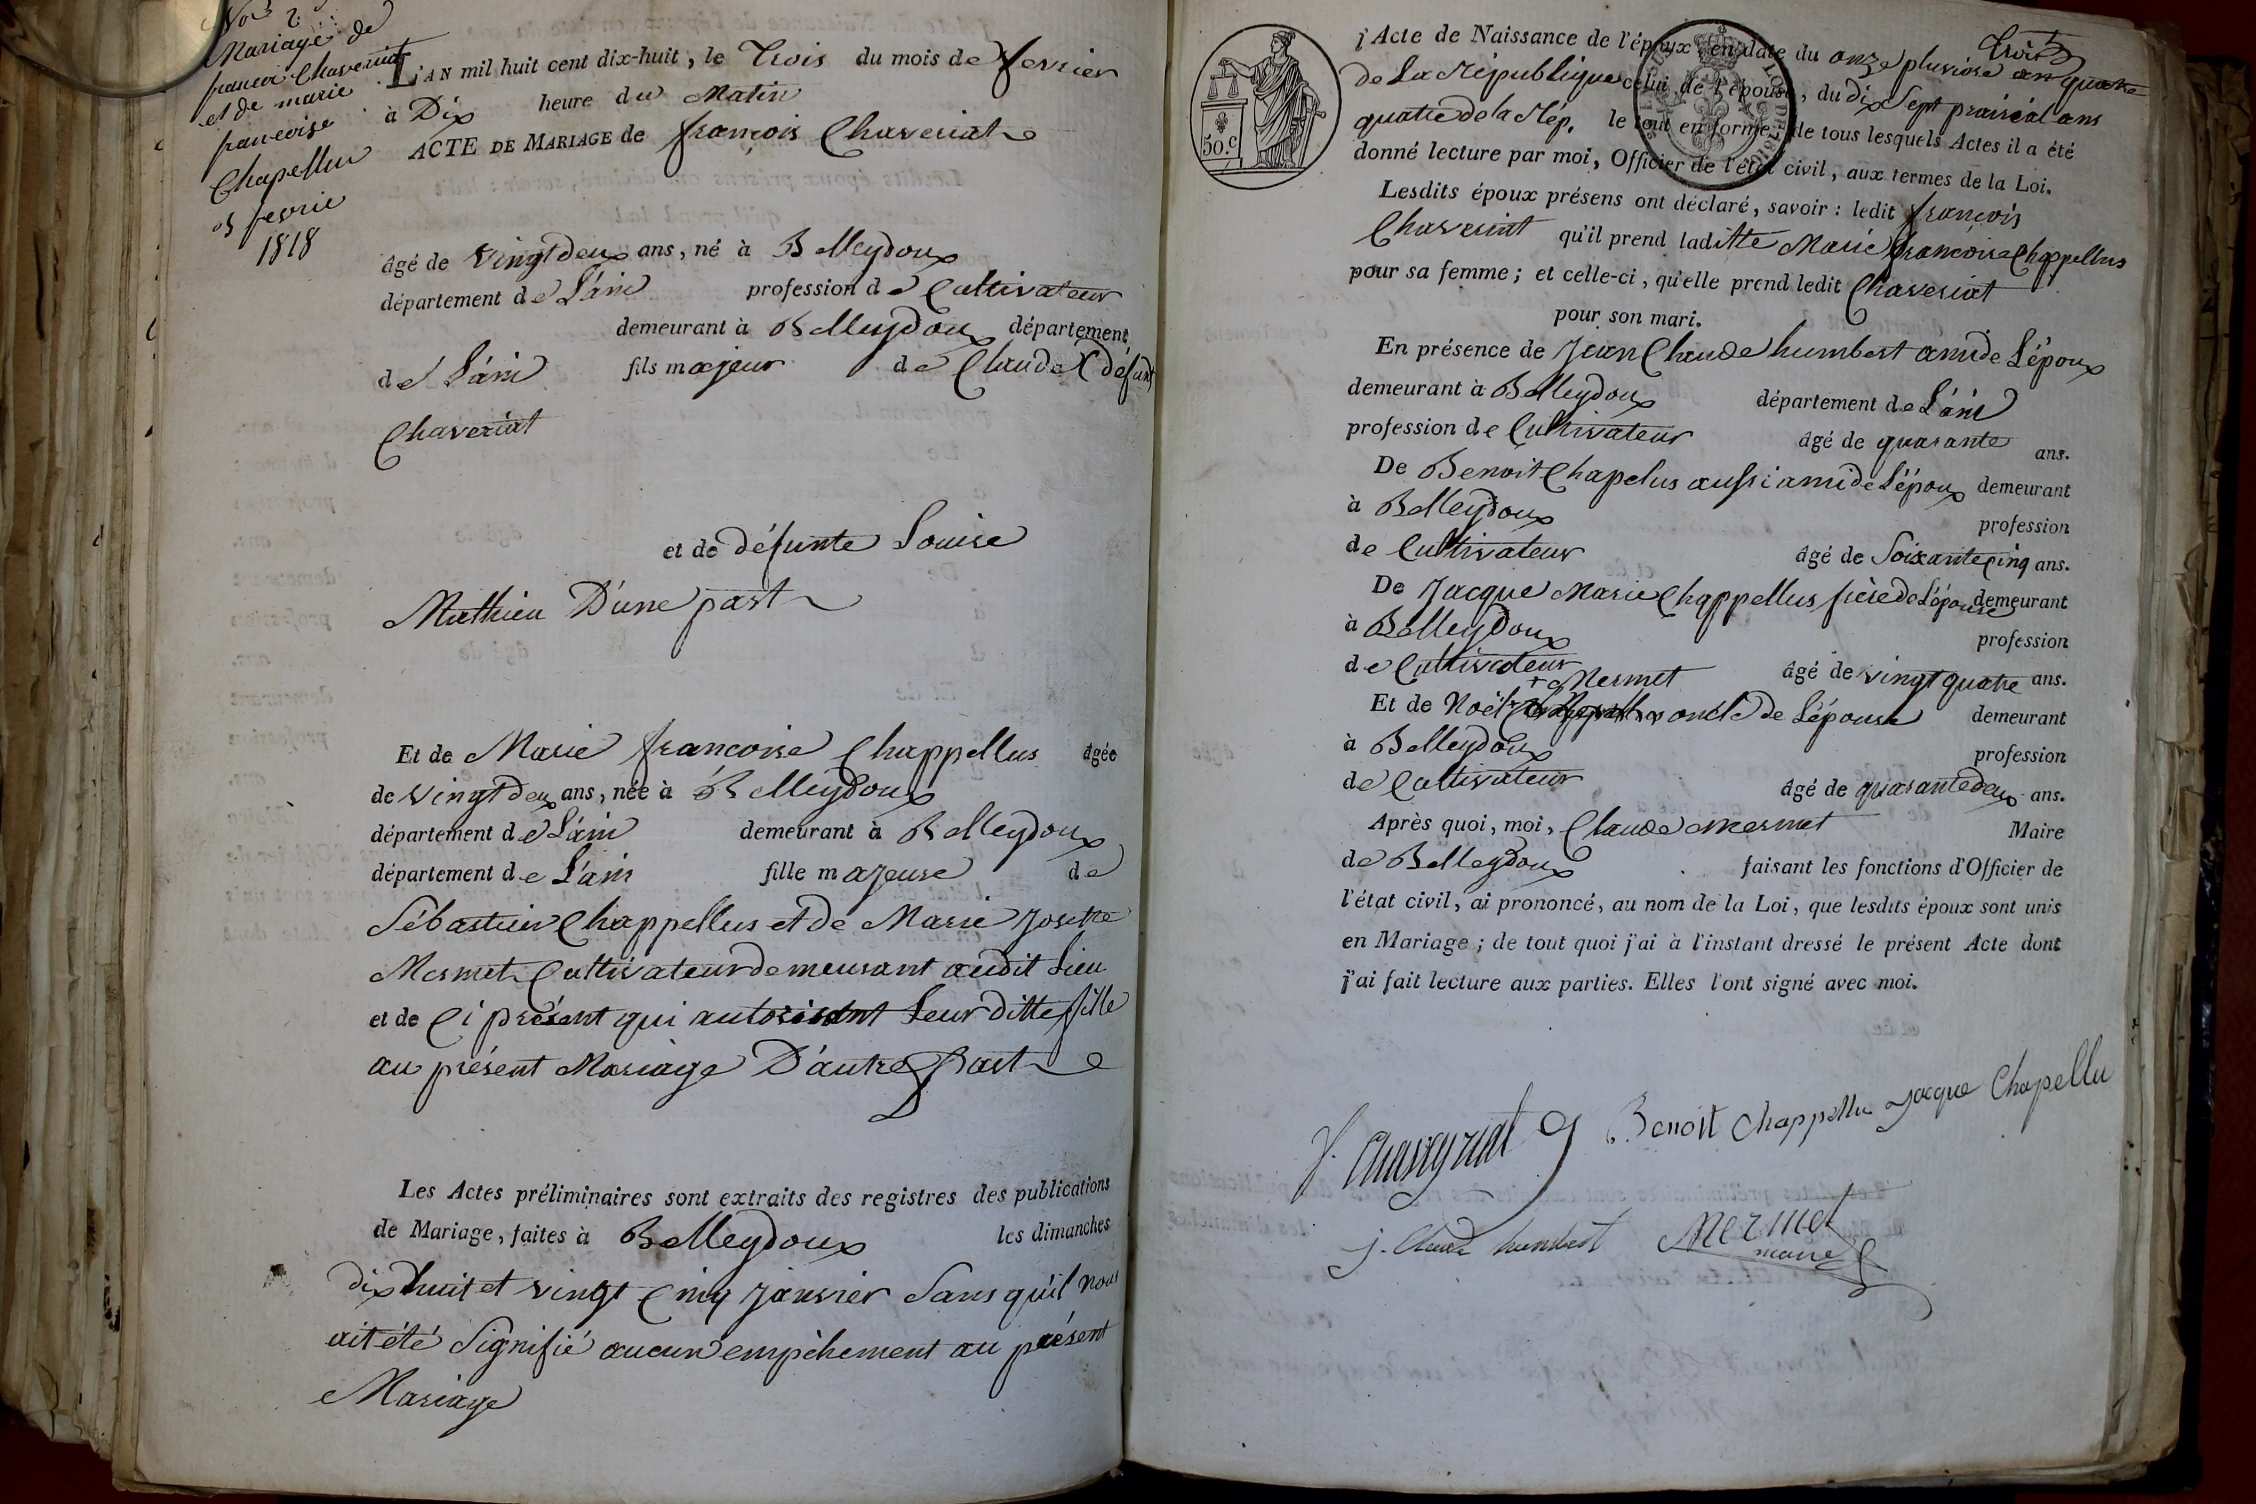 No 2
Mariage de
françois Chaveriat
et de marie
françoise
Chapellus
03 fevrie
1818
L'AN mil huit cent dix-huit, le Trois du mois de fevrier
à Dix heure du Matin
ACTE DE MARIAGE de françois Chaveriat
âgé de vingt deux ans, né à Belleydoux
département de L'ain profession de Cultivateur
demeurant à Belleydoux département
de L'ain fils majeur de Claude défunt
Chaveriat
et de défunte Louise
Mathieu D'une part
Et de Marie françoise Chappellus âgée
de vingt deux ans, née à Belleydoux
département de L'ain demeurant à Belleydoux
département de L'ain fille majeure de
Sébastien Chappellus et de Marie Josette
Mermet Cultivateur demeurant audit Lieu
et de Ci présent qui autorisent Leur ditte fille
au présent Mariage D'autre Part
Les Actes préliminaires sont extraits des registres des publications
de Mariage, faites à Belleydoux les dimanches
dix huit et vingt Cinq Janvier Sans qu'il nous
ait été Signifié aucun empêchement au présent
Mariage
50.C
Trois
j Acte de Naissance de l'époux en date du onze pluviose an quatre
de La République celui de l'épouse, du dix Sept prairéal ans
quatre de la Rép. le tout en forme; de tous lesquels Actes il a été
donné lecture par moi, Officier de l'état civil, aux termes de la Loi.
Lesdits époux présens ont déclaré, savoir: ledit françois
Chaveriat qu'il prend laditte Marie françoise Chappellus
pour sa femme; et celle-ci, qu'elle prend ledit Chaveriat
pour son mari.
En présence de Jean Claude humbert ami de L'époux
demeurant à Belleydoux département de L'ain
profession de Cultivateur âgé de quarante ans.
De Benoit Chapelus aussi ami de L'époux demeurant
à Belleydoux profession
de Cultivateur âgé de Soixante Cinq ans.
De Jacque Marie Chappellus frère de L'épouse demeurant
à Belleydoux profession
de Cultivateur âgé de vingt quatre ans.
Mermet
Et de Noël oncle de L'épouse demeurant
à Belleydoux profession
de Cultivateur âgé de quarante deux ans.
Après quoi, moi, Claude Mermet Maire
de Belleydoux faisant les fonctions d'Officier de
l'état civil, ai prononcé, au nom de la Loi, que lesdits époux sont unis
en Mariage; de tout quoi j'ai à l'instant dressé le présent Acte dont
j'ai fait lecture aux parties. Elles l'ont signé avec moi.
f. Chaveyriat Benoit Chappellu Jacque Chapellu
j. Claude humbert Mermet
maire